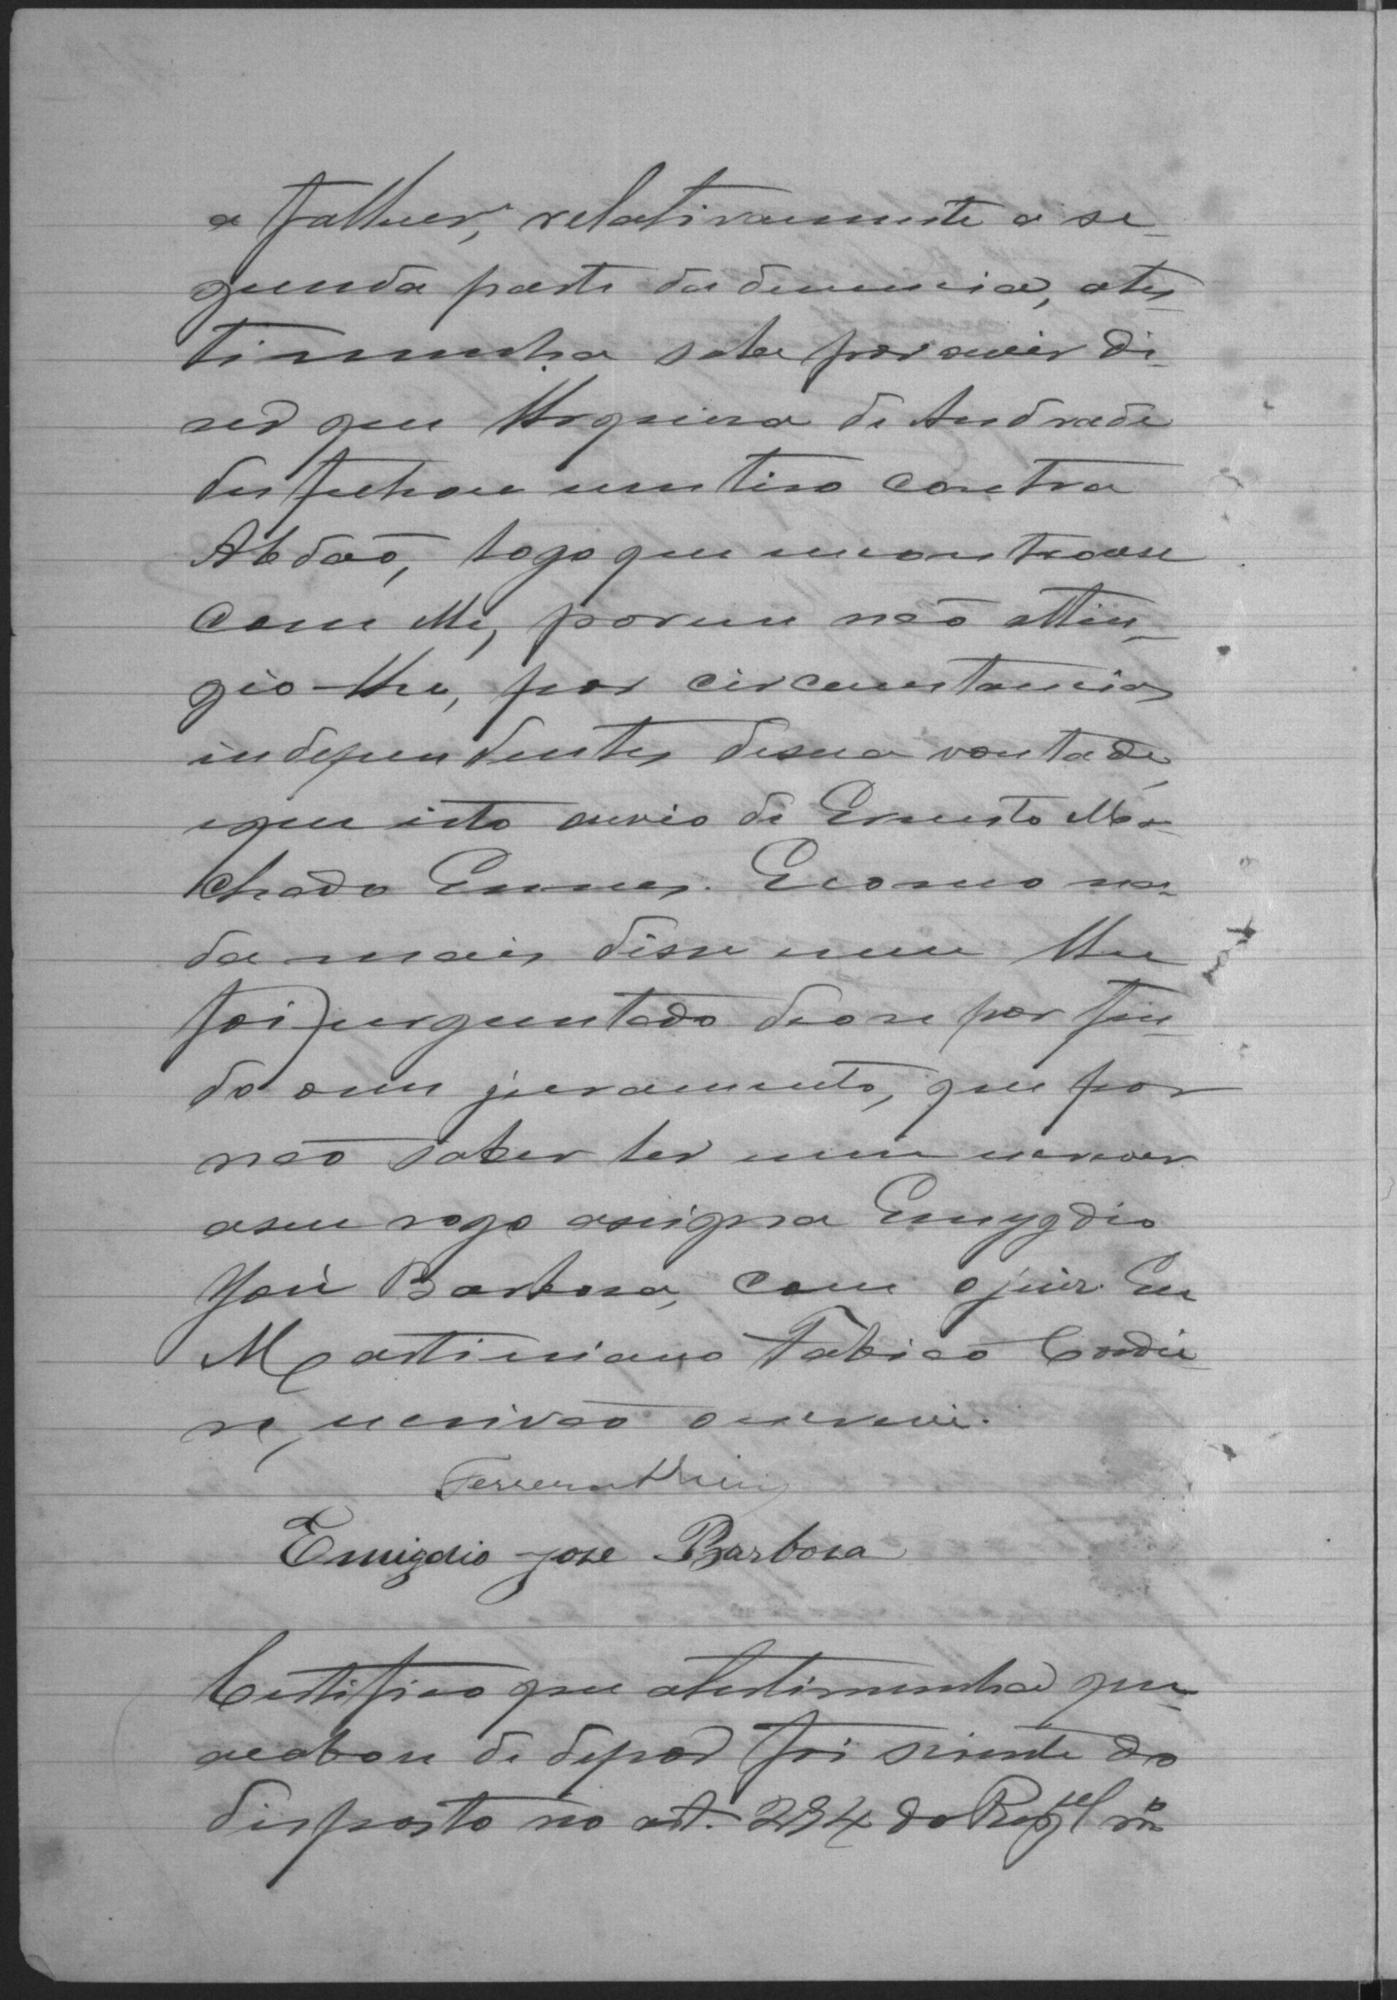 a falhar, relativamente a se-
gunda parte da denuncia, ates
timunha sabe por ouvir di-
ser que Urquisa de Andrade
desfechou um tiro contra
Abdão, logo que encontrouse
com elle, porem não attin-
gio-lhe, por circumstancias
independentes desua vontade,
eque isto ouvio de Ernesto Ma-
chado Ennes. Ecomo na-
da mais disse nem lhe
foi perguntado deose por fin-
do oseu juramento, que por
não saber ler nem escrever
aseu rogo assigna Emygdio
José Barbosa, com ojuiz. Eu
Martiniano Fabião Cordei
ro, escrivão oescrevi.
Emigdio Jose Barbosa
Certifico que atestimunha que
acabou de depor foi sciente do
disposto no art. 294 do Regul nº